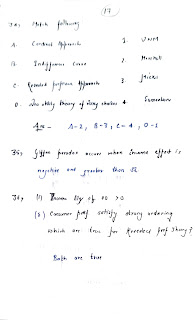 17
Match following
A. Cardinal Approach 1. VNM
B. Indifference Curve 2. Marshall
C. Revealed preference Approach 3 Hicks
D. utility theory of risky choices 4 Samuelson
Ans - A-2, B-3, C-4, D-1
35. Giffen paradox occurs when income effect is
negative and greater than SE
(1) Income of >0
(2) Consumer pref satisfy strong ordering
which are true for Revealed Pref theory?
Both are true